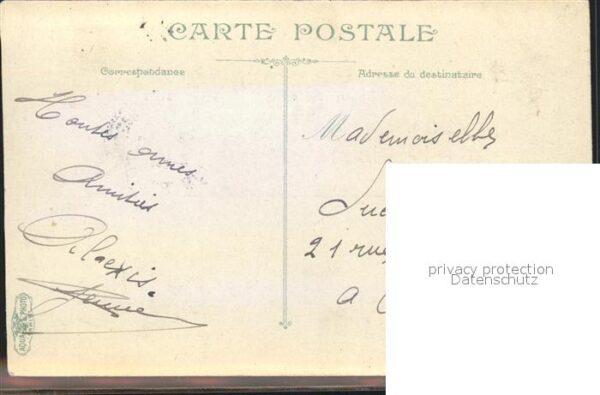 CARTE POSTALE
Correspondance
Adresse du destinataire
Toutes mes
Amitiés
Mademoiselle
Luc
21 rue
a
privacy protection
Datenschutz